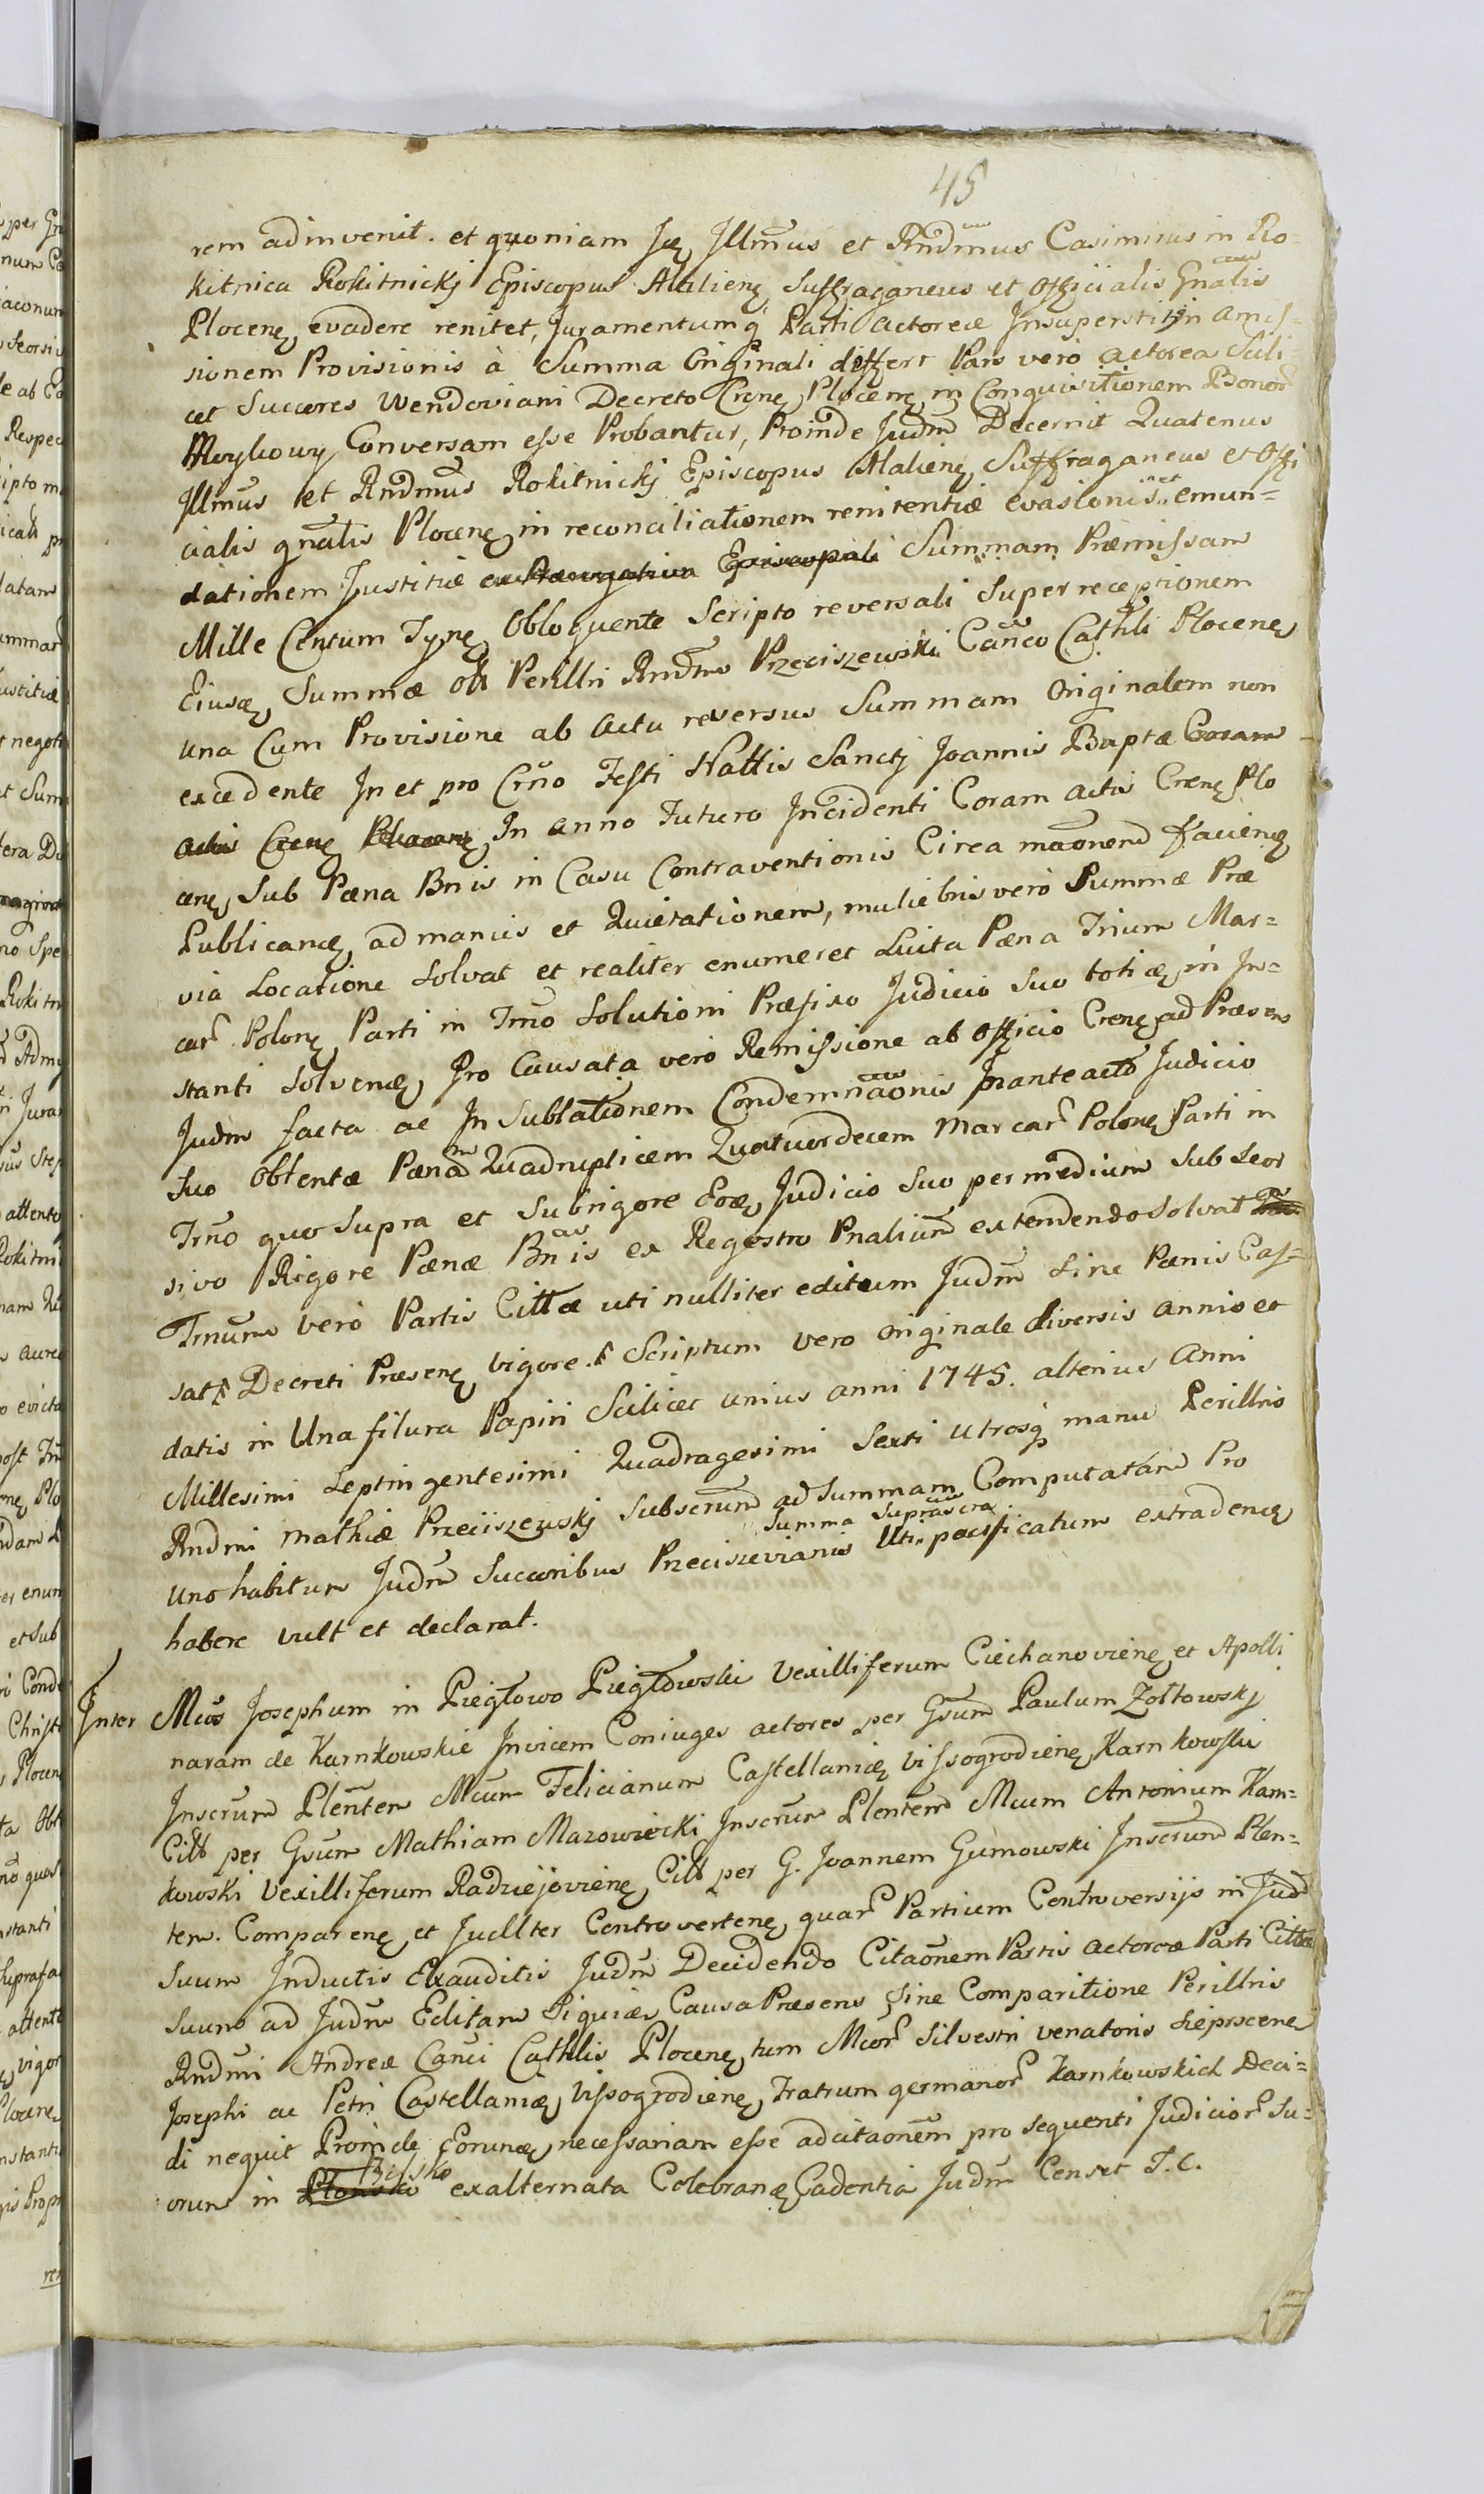 45
rem adinvenit. et quoniam Ice Illmus et Rndmus Casimirus in Ro=
kitnica Rokitnickj Episcopus Mallienę Suffraganeus et Officialis Gnalis
Plocenę evadere renitet, Juramentumq Parti actoreæ Insuper in amis=
sionem Provisionis à Summa Originali differt Pars vero actorea Scili=
cet Succeres Wendoviani Decreto Crenę Plocenę in Conquisitionem Bonor
Conversam esse Probantur, Proinde Judm Decernit Quatenus
Illmus et Rndmus Rokitnickj Episcopus Malienę Suffraganeus et Offi
cialis gnalis Plocenę in reconciliationem renitentiæ evasionis et emun=
dationem Justitiæ Episcopali Summam Præmissam
Mille Centum Tynę Obloquente Scripto reversali Super receptionem
Eiusdę Summæ ob Perillri Rndmo Przeciszewski Canco Cathli Plocenę
una Cum Provisione ab actu reversus Summam Originalem non
excedente In et pro Crno Festi Nattis Sanctj Joannis Baptæ Coram
actis Crenę Plocenę In anno Futuro Incidenti Coram actis Crenę Plo
cenę Sub Pæna Bnis in Casu Contraventionis Circa maonem faciendę
Publicandę ad manus et Quietationem, muliebris vero Summæ Præ
via Locatione Solvat et realiter enumeret Luita Pæna Trium Mar=
car Polonę Parti in Trno Solutioni Præfixo Judicio Suo totidę in In=
stanti Solvendę Pro Causata vero Remissione ab Officio Crenę ad Præsens
Judm facta ac In Sublationem Condemnaonis in ante acto Judicio
Suo Obtentæ Pænam Quadruplicem Quatuordecem Marcar Polonę Parti in
Trno quo Supra et Subrigore Eodę Judicio Suo per medium Sub Seor
sivo Rigore Pænæ Bnis ex Regestro Pnalium extendendo Solvat
Trnum vero Partis Cittæ uti nulliter editum Judm Sine Pænis Cas=
sat Decreti Præsenę vigore. Scriptum vero originale diversis annis et
datis in Una filura Papiri Scilicet unius anni 1745. alterius Anni
Millesimi Septingentesimi Quadragesimi Sexti utrosq manu Perillris
Rndmi Mathiæ Przeciszewskj Subscrum ad Summam Computatam Pro
uno habitum Judm Succoribus Przeciszevianis Uti Summa Suprascra pacificatum extradendę
habere vult et declarat.
Inter Mcos Josephum in Pieglowo Pieglowski Vexilliferum Ciechanovienę et Apolli
naram de Karnkowskie Invicem Coniuges actores per Gsum Paulum Zoltowskj
Inscrum Plentem Mcum Felicianum Castellanidę Vissogrodienę Karnkowski
Citt per Gsum Mathiam Mazowiecki Inscrum Plentem Mcum Antonium Karn=
kowski Vexilliferum Radziejovienę Citt per G. Joannem Gumowski Inscrum Plen=
tem. Comparenę et Juellter Controvertenę quar Partium Controversijs in Judo
Suum Inductis Exauditis Judm Decidendo Citaonem Partis actoreæ Parti Cittæ
Suum ad Judm Editam Siquidę Causa Præsens Sine Comparitione Perillris
Rndmi Andreæ Canci Cathlis Plocenę tum Mcor Silvestri venatoris Sieprscenę
Josephi ac Petri Castellanidę Vissogrodienę Fratrum germanor Karnkowskich Deci=
di nequit Proinde Eorundę necessariam esse adcitaonem pro Sequenti Judicior Su=
orum in Bielsko exalternata Celebrandę Cadentia Judm Censet T. C.